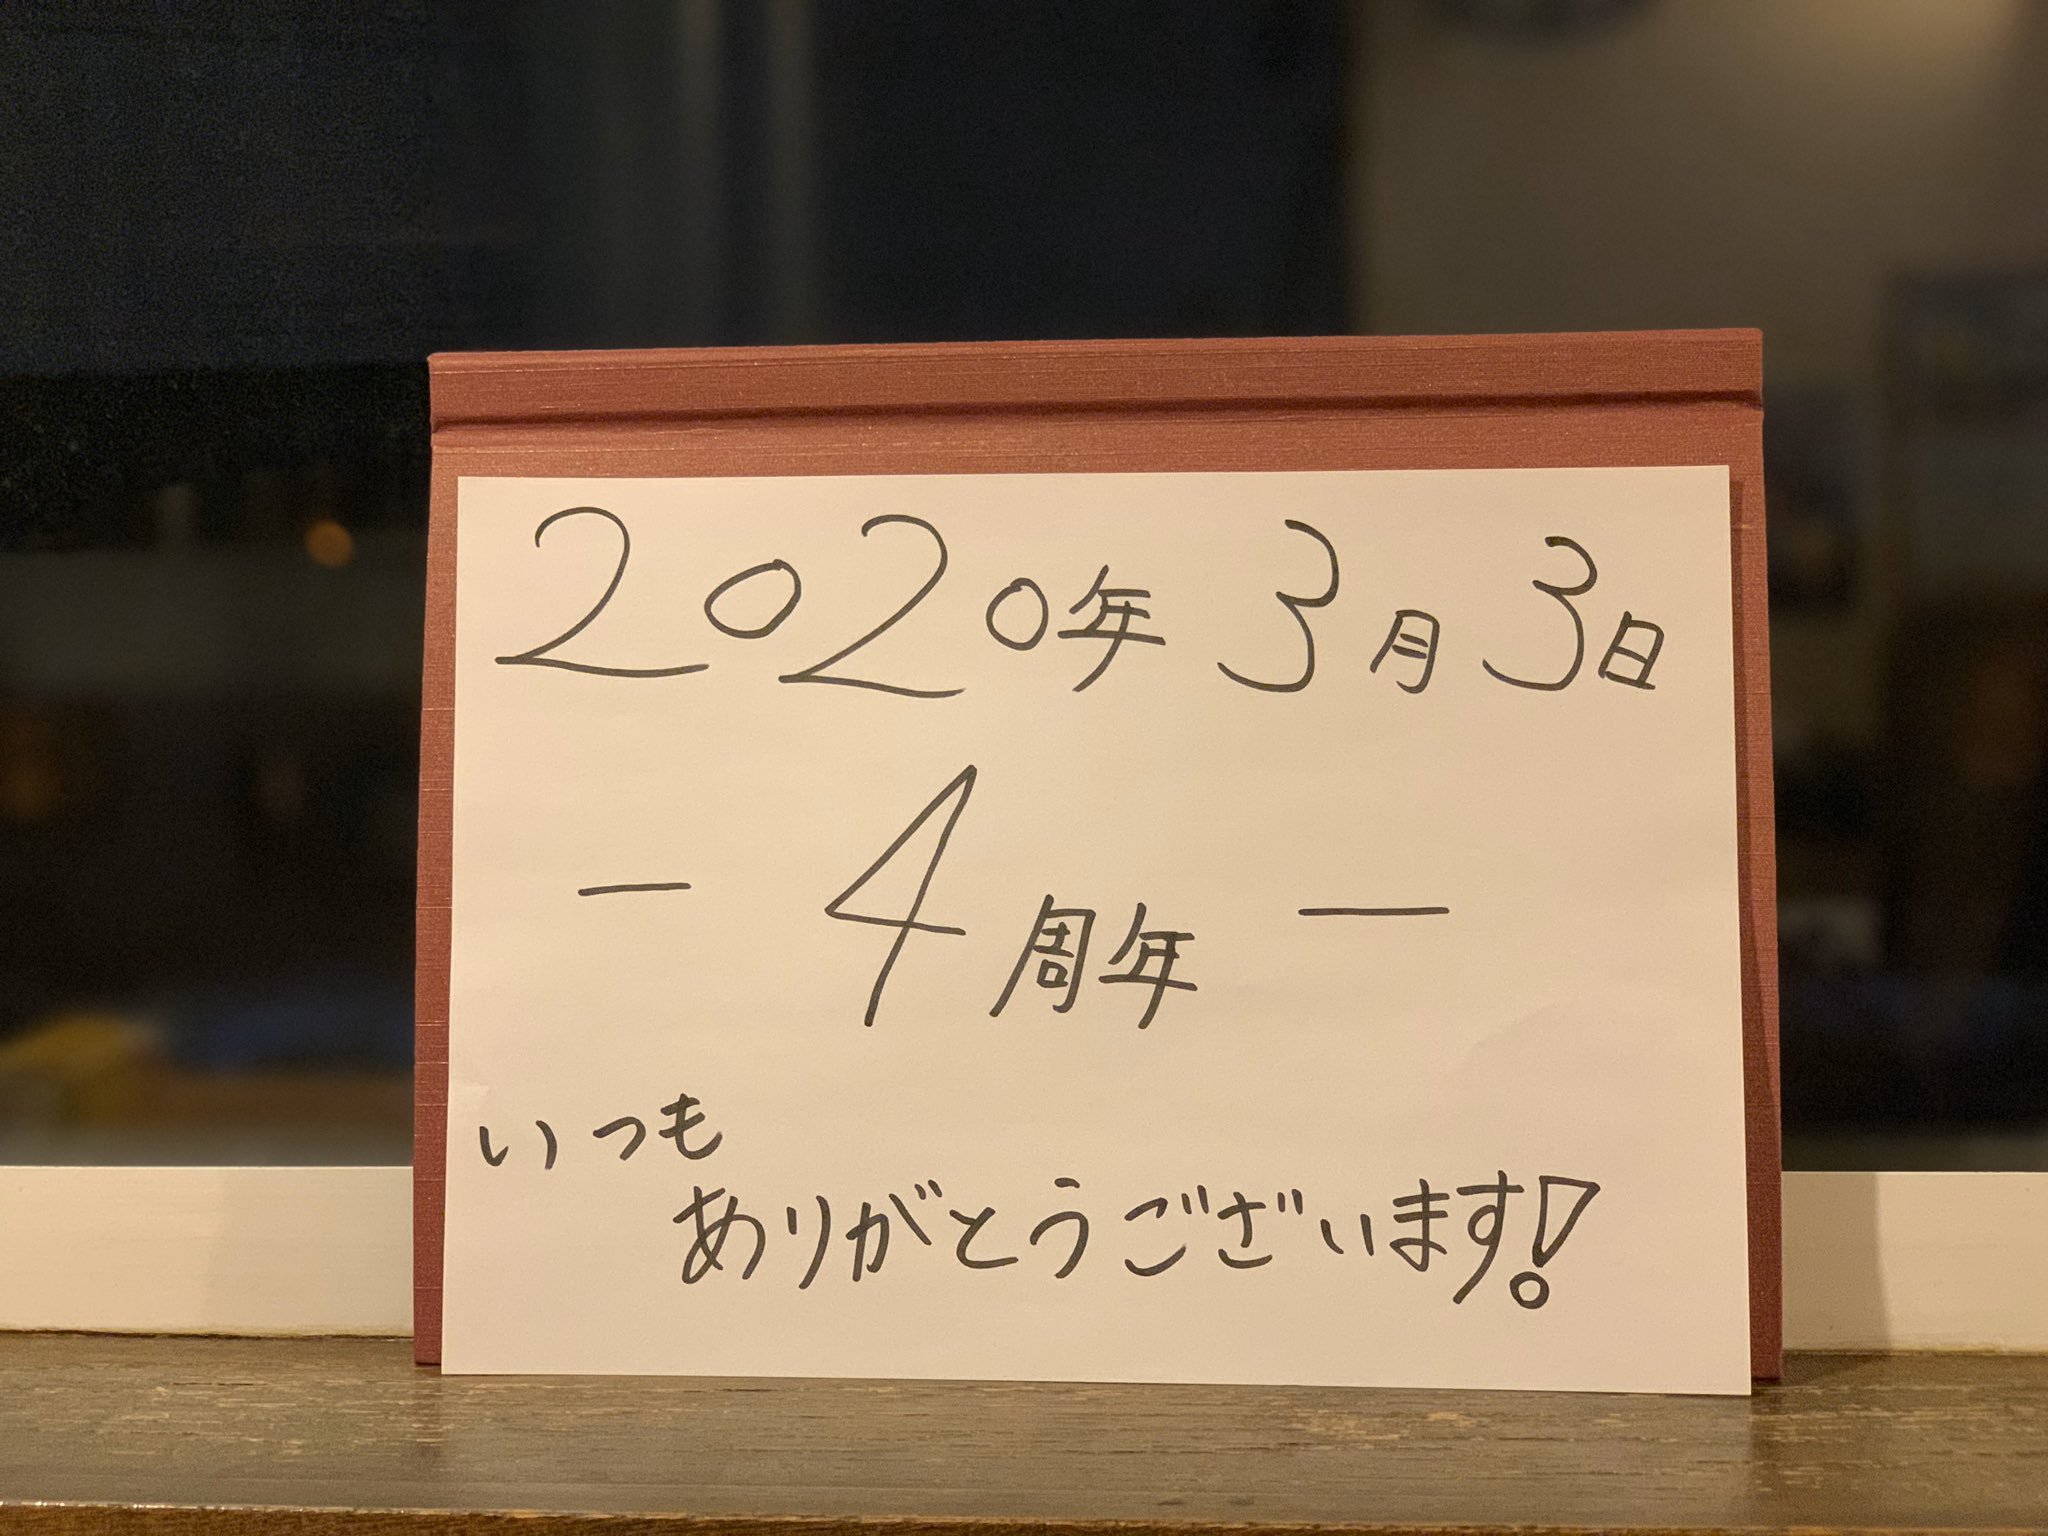 2020年3月3日
- 4周年 -
いつも
ありがとうございます!